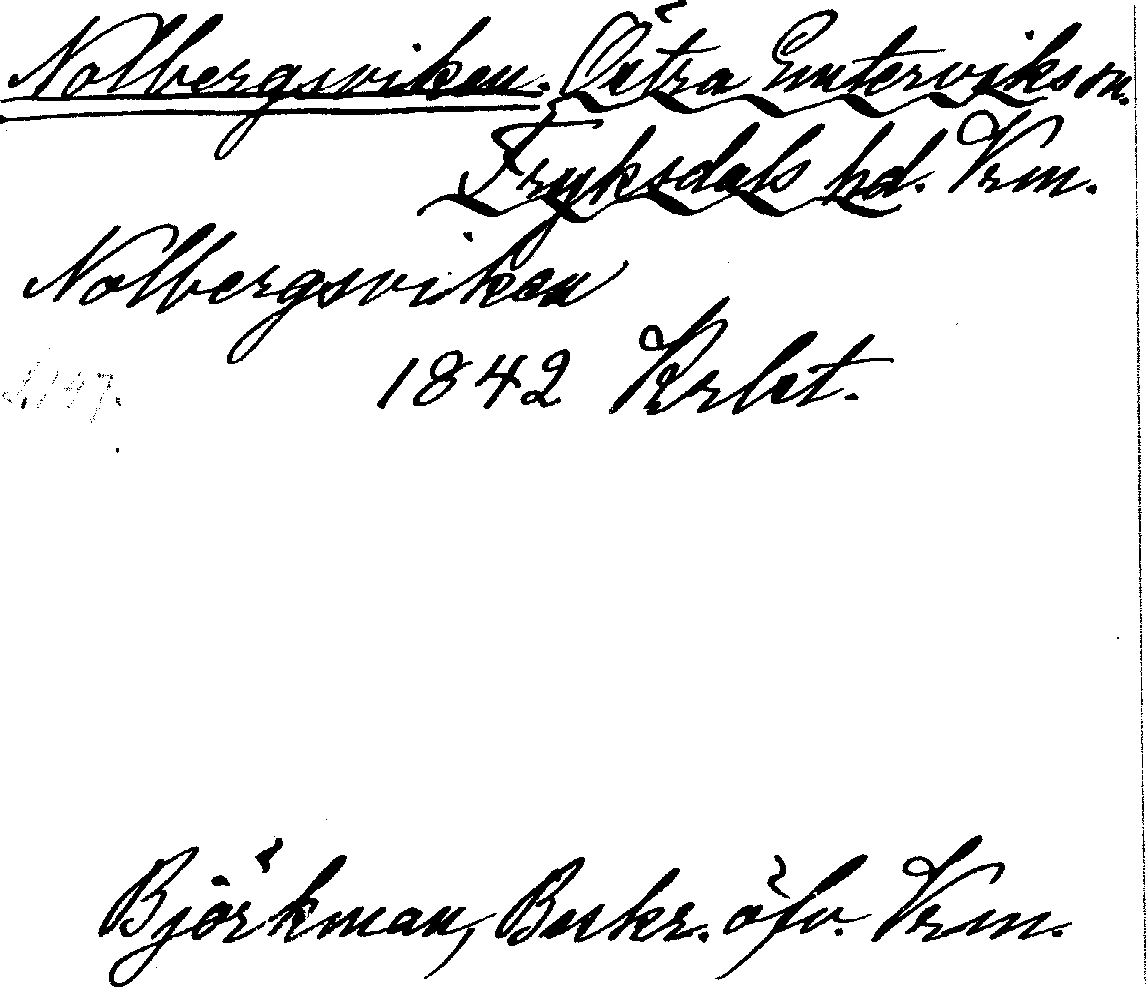 Nolbergsviken. Östra Emterviks sn.
Fryksdals hd. Vrm.
Nolbergsviken
1842 Krbet.
Björkman, Beskr. öfv. Vrm.